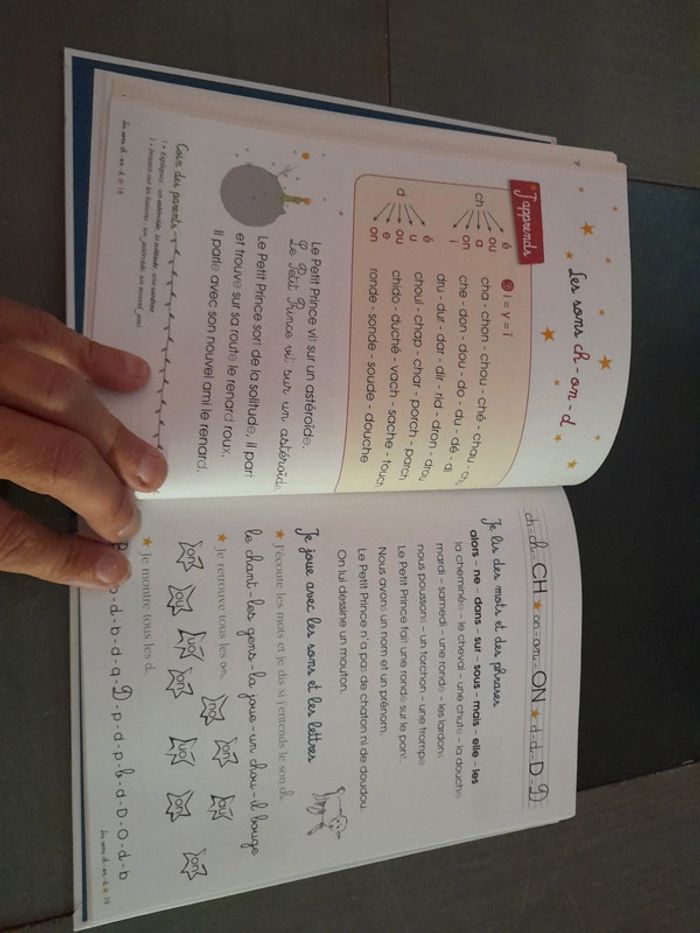 Les sons ch - on - d
J'apprends
i = y = ï
é
ou
ch a
on
i
cha - chon - chou - ché - chau
che - don - dou - do - du - dé - di
dru - dur - dar - dir - rid - dron - drou
é
u
d ou
e
on
choul - chap - char - porch - parch
chido - duché - vach - sache - touch
ronde - sonde - soude - douche
Le Petit Prince vit sur un astéroïde.
Le Petit Prince vit sur un astéroïde
Le Petit Prince sort de la solitude, il part
et trouve sur sa route le renard roux.
Il parle avec son nouvel ami le renard.
Coin des parents
Les sons ch - on - d 18
ch - ch - CH on - on - ON d - d - D - D
Je lis des mots et des phrases
alors – ne – dans – sur – sous – mais – elle – les
la cheminée – le cheval – une chute – la douche
mardi – samedi – une ronde – les lardons
nous poussons – un torchon – une trompe
Le Petit Prince fait une ronde sur le pont.
Nous avons un nom et un prénom.
Le Petit Prince n'a pas de chaton ni de doudou.
On lui dessine un mouton.
Je joue avec les sons et les lettres
J'écoute les mots et je dis si j'entends le son
le chant - les gens - la joue - un chou - il bouge
Je retrouve tous les on.
on ou uo on no uo on on ou on
Je montre tous les d.
b - d - b - d - q - D - p - d - p - b - d - D - O - d - b
Les sons ch - on - d 19